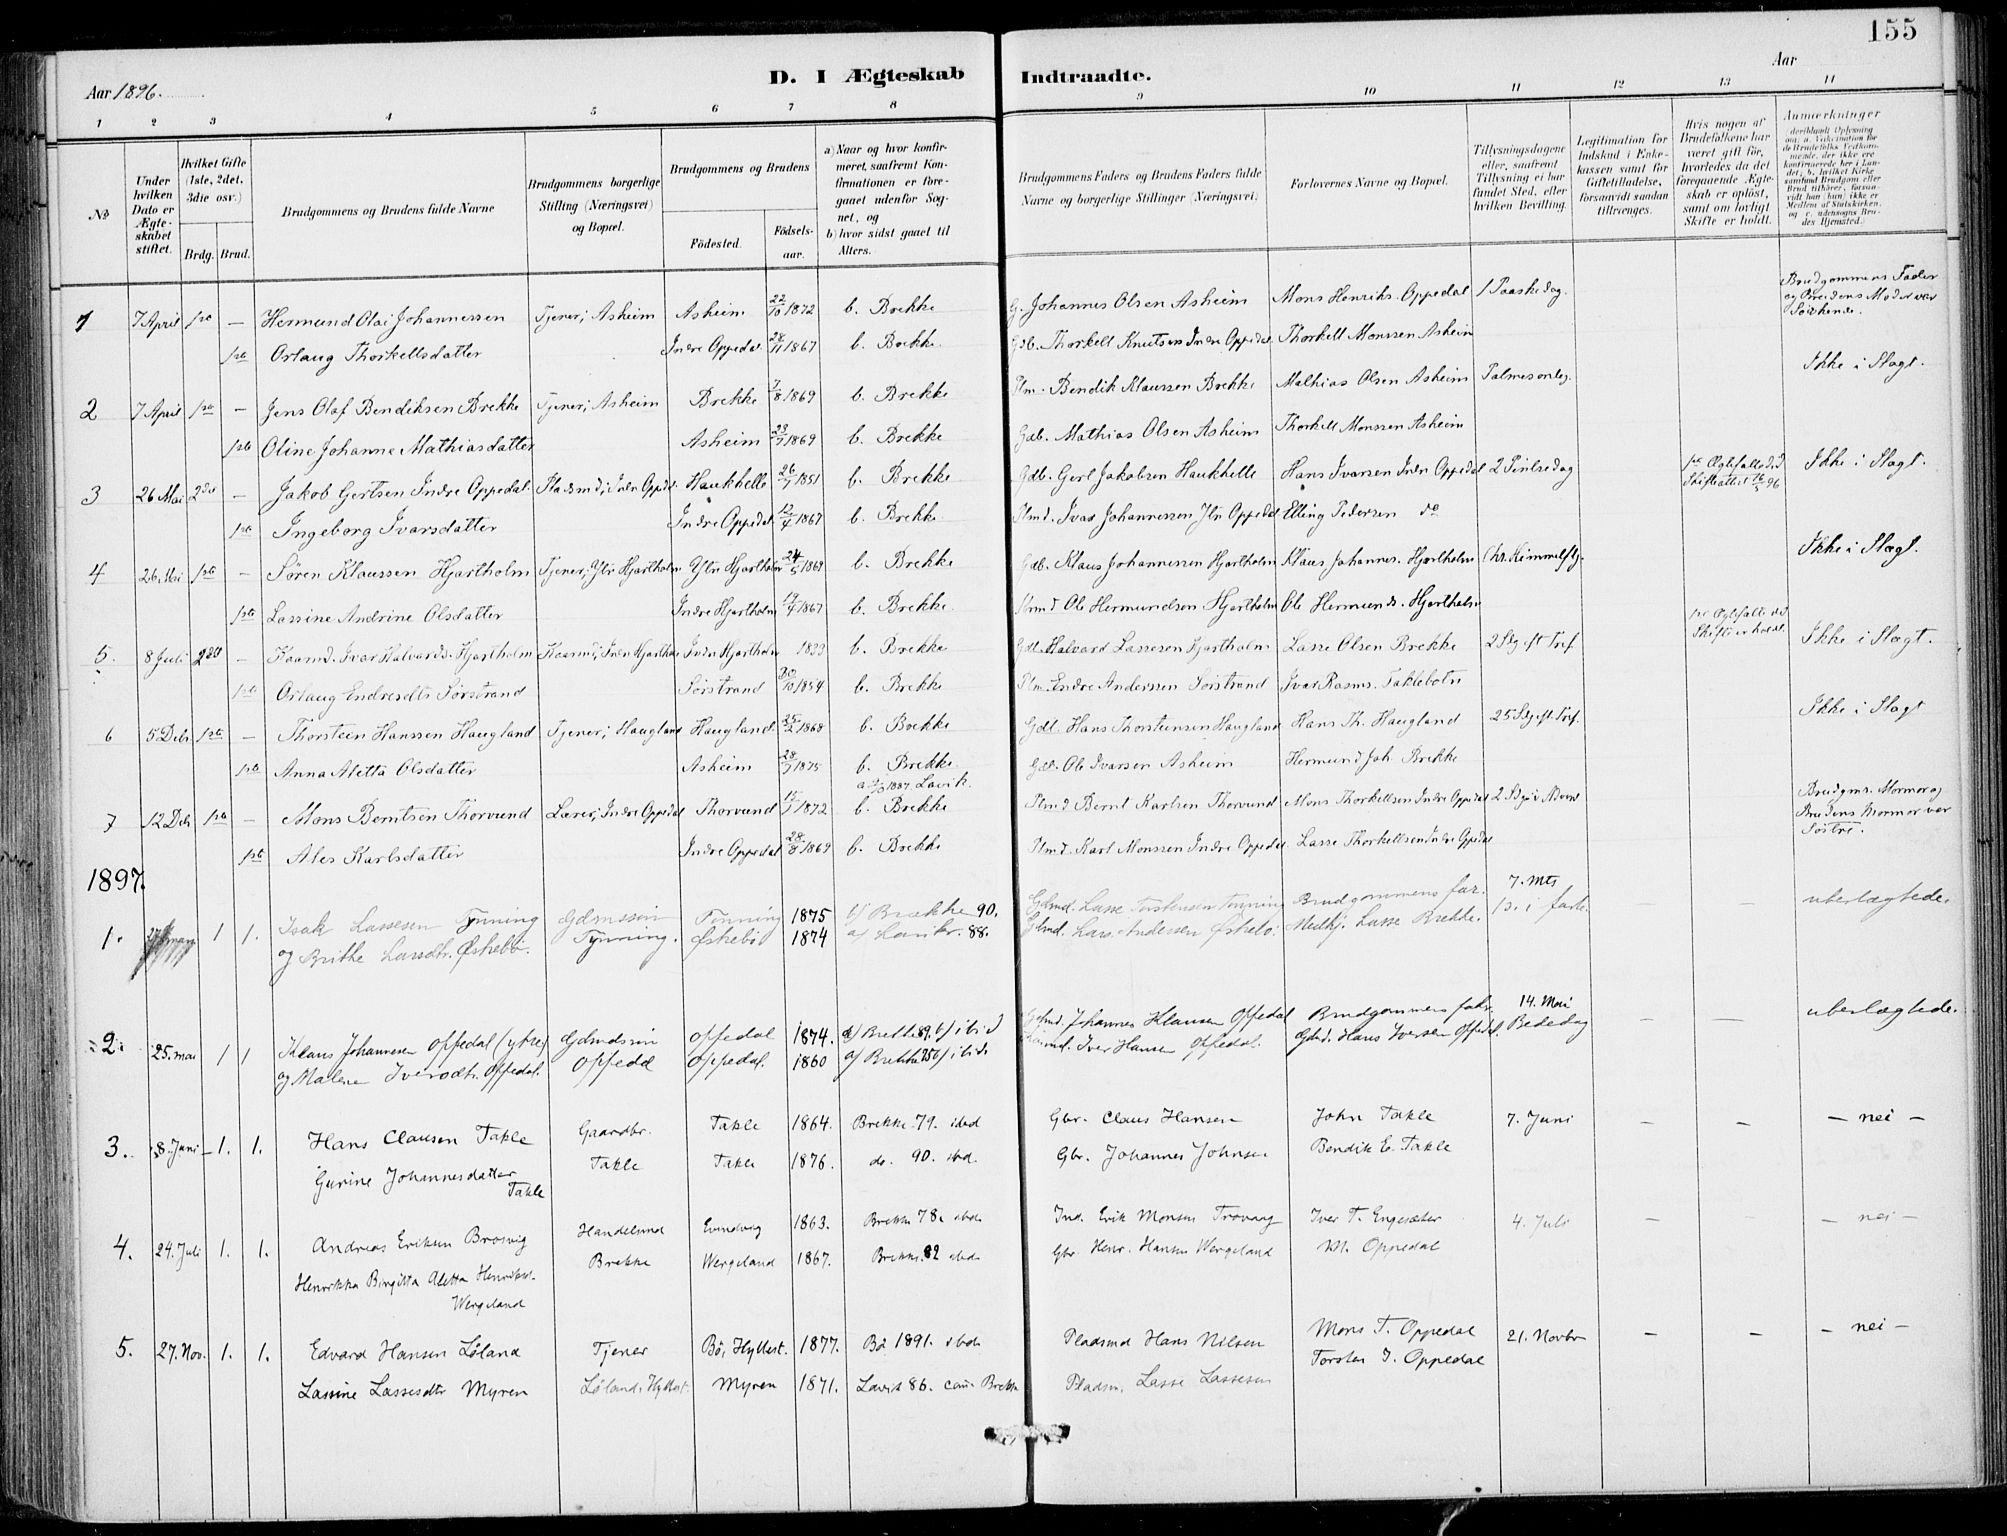 155
D. I Ægteskab Indtraadte.
Aar 1896. Aar
1 2 3 4 5 6 7 8 9 10 11 12 13 14
No
Under hvilken Dato er Ægteskabet stiftet.
Hvilket Gifte (1ste, 2det, 3die osv.)
Brdg. Brud.
Brudgommens og Brudens fulde Navne
Brudgommens borgerlige Stilling (Næringsvei) og Bopæl.
Brudgommens og Brudens
Födested. Födselsaar.
a) Naar og hvor konfirmeret, saafremt Konfirmationen er foregaaet udenfor Sognet, og
b) hvor sidst gaaet til Alters.
Brudgommens Faders og Brudens Faders fulde Navne og borgerlige Stillinger (Næringsvei)
Forlovernes Navne og Bopæl.
Tillysningsdagene eller, saafremt Tillysning ei har fundet Sted, efter hvilken Bevilling.
Legitimation for Indskud i Enkekassen samt for Giftetilladelse, forsaavidt saadan tiltrænges.
Hvis nogen af Brudefolkene har været gift för, hvorledes da det foregaaende Ægteskab er oplöst, samt om lovligt Skifte er holdt.
Anmærkninger
1 7 April 1ste – Hermund Olai Johannessen Tjener, Asheim Asheim 22/10 1872 b. Brekke G. Johannes Olsen Asheim Mons Henriks. Oppedal 1 Paaskedag. Brudgommens Fader og Brudens Moder var Søskende.
1ste Orlaug Thorkellsdatter Indre Oppedal 24/11 1867 b. Brekke. Gdb. Thorkell Knutsen Indre Oppedal Thorkell Monssen Asheim
2 7 April 1ste – Jens Olaf Bendiksen Brekke Tjener, Asheim Brekke 7/8 1869 b. Brekke Plm. Bendik Klaussen Brekke Mathias Olsen Asheim Palmesøndg. Ikke i Slægt.
1ste Oline Johanne Mathiasdatter Asheim 23/7 1869 b. Brekke Gdb. Mathias Olsen Asheim Thorkell Monssen Asheim
3 26 Mai 2den – Jakob Gertsen Indre Oppedal Pladsmd, Indre Oppedl. Haukhelle 26/7 1851 b. Brekke Gdb. Gert Jakobsen Haukhelle Hans Ivarsen Indre Oppedal 2 Pintsedag 1ste Ægtefælle død Skifteattest 16/5 96 Ikke i Slægt.
1ste Ingeborg Ivarsdatter Indre Oppedal 12/4 1867 b. Brekke Plmd. Ivar Johannessen Ytr Oppedal Elling Pedersen do
4 26. Mai 1ste – Søren Klaussen Hjartholm Tjener, Ytr Hjartholm Ytr Hjartholm 24/5 1869 b. Brekke Gdb. Klaus Johannessen Hjartholm Klaus Johannes. Hjartholm Chr. Himmelftg. Ikke i Slægt.
1ste Lassine Andrine Olsdatter Indre Hjartholm 17/4 1867 b. Brekke. Plmd Ole Hermundsen Hjartholm Ole Hermunds. Hjartholm
5. 8 Juli 2den – Kaarmd. Ivar Halvards. Hjartholm Kaarmd, Indre Hjartholm Indre Hjartholm 1833 b. Brekke Gdb. Halvard Lassesen Hjartholm Lasse Olsen Brekke 2 Sdg. eft Tref. 1ste Ægtefælle død Skifte er holdt. Ikke i Slægt.
1ste Orlaug Endresdtr Sørstrand Sørstrand 30/10 1854 b. Brekke Plm. Endre Anderssen Sørstrand Ivar Rasms. Taklebotn
6 5. Debr 1ste – Thorstein Hanssen Haugland Tjener, Haugland Haugland 25/2 1868 b. Brekke Gdb. Hans Thorsteinsen Haugland Hans Th. Haugland 25 Sdg. eft. Tref. Ikke i Slægt
1ste Anna Aletta Olsdatter Asheim 28/7 1875 b. Brekke Gdb. Ole Ivarsen Asheim Hermund Joh. Brekke
7 12 Debr 1ste – Mons Berntsen Thorvund Lærer, Indre Oppedal Thorvund 15/7 1872 a 2/10 1887. Lavik. b. Brekke Plmd Bernt Karlsen Thorvund Mons Thorkellsen Indre Oppedal 2 Sdg. i Advent Brudgms. Mormor og Brudens Mormor var Søstre.
1ste Ales Karlsdatter Indre Oppedal 28/8 1869 b. Brekke Plmd. Karl Monssen Indre Oppedal Lasse Thorkellsen Indre Oppedal
1897.
1. 1 1. Isak Lassesen Tynning Gdmssøn Tynning 1875 b/ Brække 90. Gdmd. Lasse Torstensen Tynning Brudgommens far. 7. Mts – – ubeslægtede.
og Brithe Larsdtr. Østrebø. Tynning. Østrebø 1874 a/ Lavik. 88. Gbmd. Lars Andersen Østrebø Medhj. Lasse Brekke. 1s. i faste
2. 25. mai 1 1 Klaus Johannesen Oppedal (ytre) Gdmdssøn Oppedal 1874. a/ Brekke 89. b/ ibid Gdmd. Johannes Klausen Oppedal Brudgommens fader 14. Mai – – ubeslægtede.
og Malene Iversdtr. Oppedal. Oppedal Oppedal. 1860 a/ Brekke 75 b/ ibid. Iver Hansen Oppedal. Gbd. Hans Iversen Oppedal. Bededag
3. 8. Juni 1. 1. Hans Clausen Takle Gaardbr. Takle 1864. Brekke. 79. ibid Gbr. Claus Hansen John Takle 7. Juni – – – nei –
Gurine Johannesdatter Takle Takle Takle 1876. do. 90. ibid. Gbr. Johannes Johnsen Bendik E. Takle
4. 24. Juli 1. 1. Andreas Eriksen Brosvig Handelsmd Evindvig 1863. Brekke 78. ibid. Ind. Erik Monsen Trovaag Iver T. Engesæter 4. Juli – – – nei –
Henrikka Birgitta Aletta Henriksd. Wergeland Brekke Wergeland 1867. Brekke. 82 ibid Gbr. Henr. Hansen Wergeland M. Oppedal
5. 27. Nov. 1. 1. Edvard Hansen Løland Tjener Bø, Hyllest. 1877. Bø 1891. ibid. Pladsmd Hans Nilsen Mons T. Oppedal 21. Novbr – – – nei –
Lassine Lassesdtr Myren Løland, Hyllest. Myren 1871. Lavik 86. Brekke Pladsm. Lasse Lassesen Torsten J. Oppedal